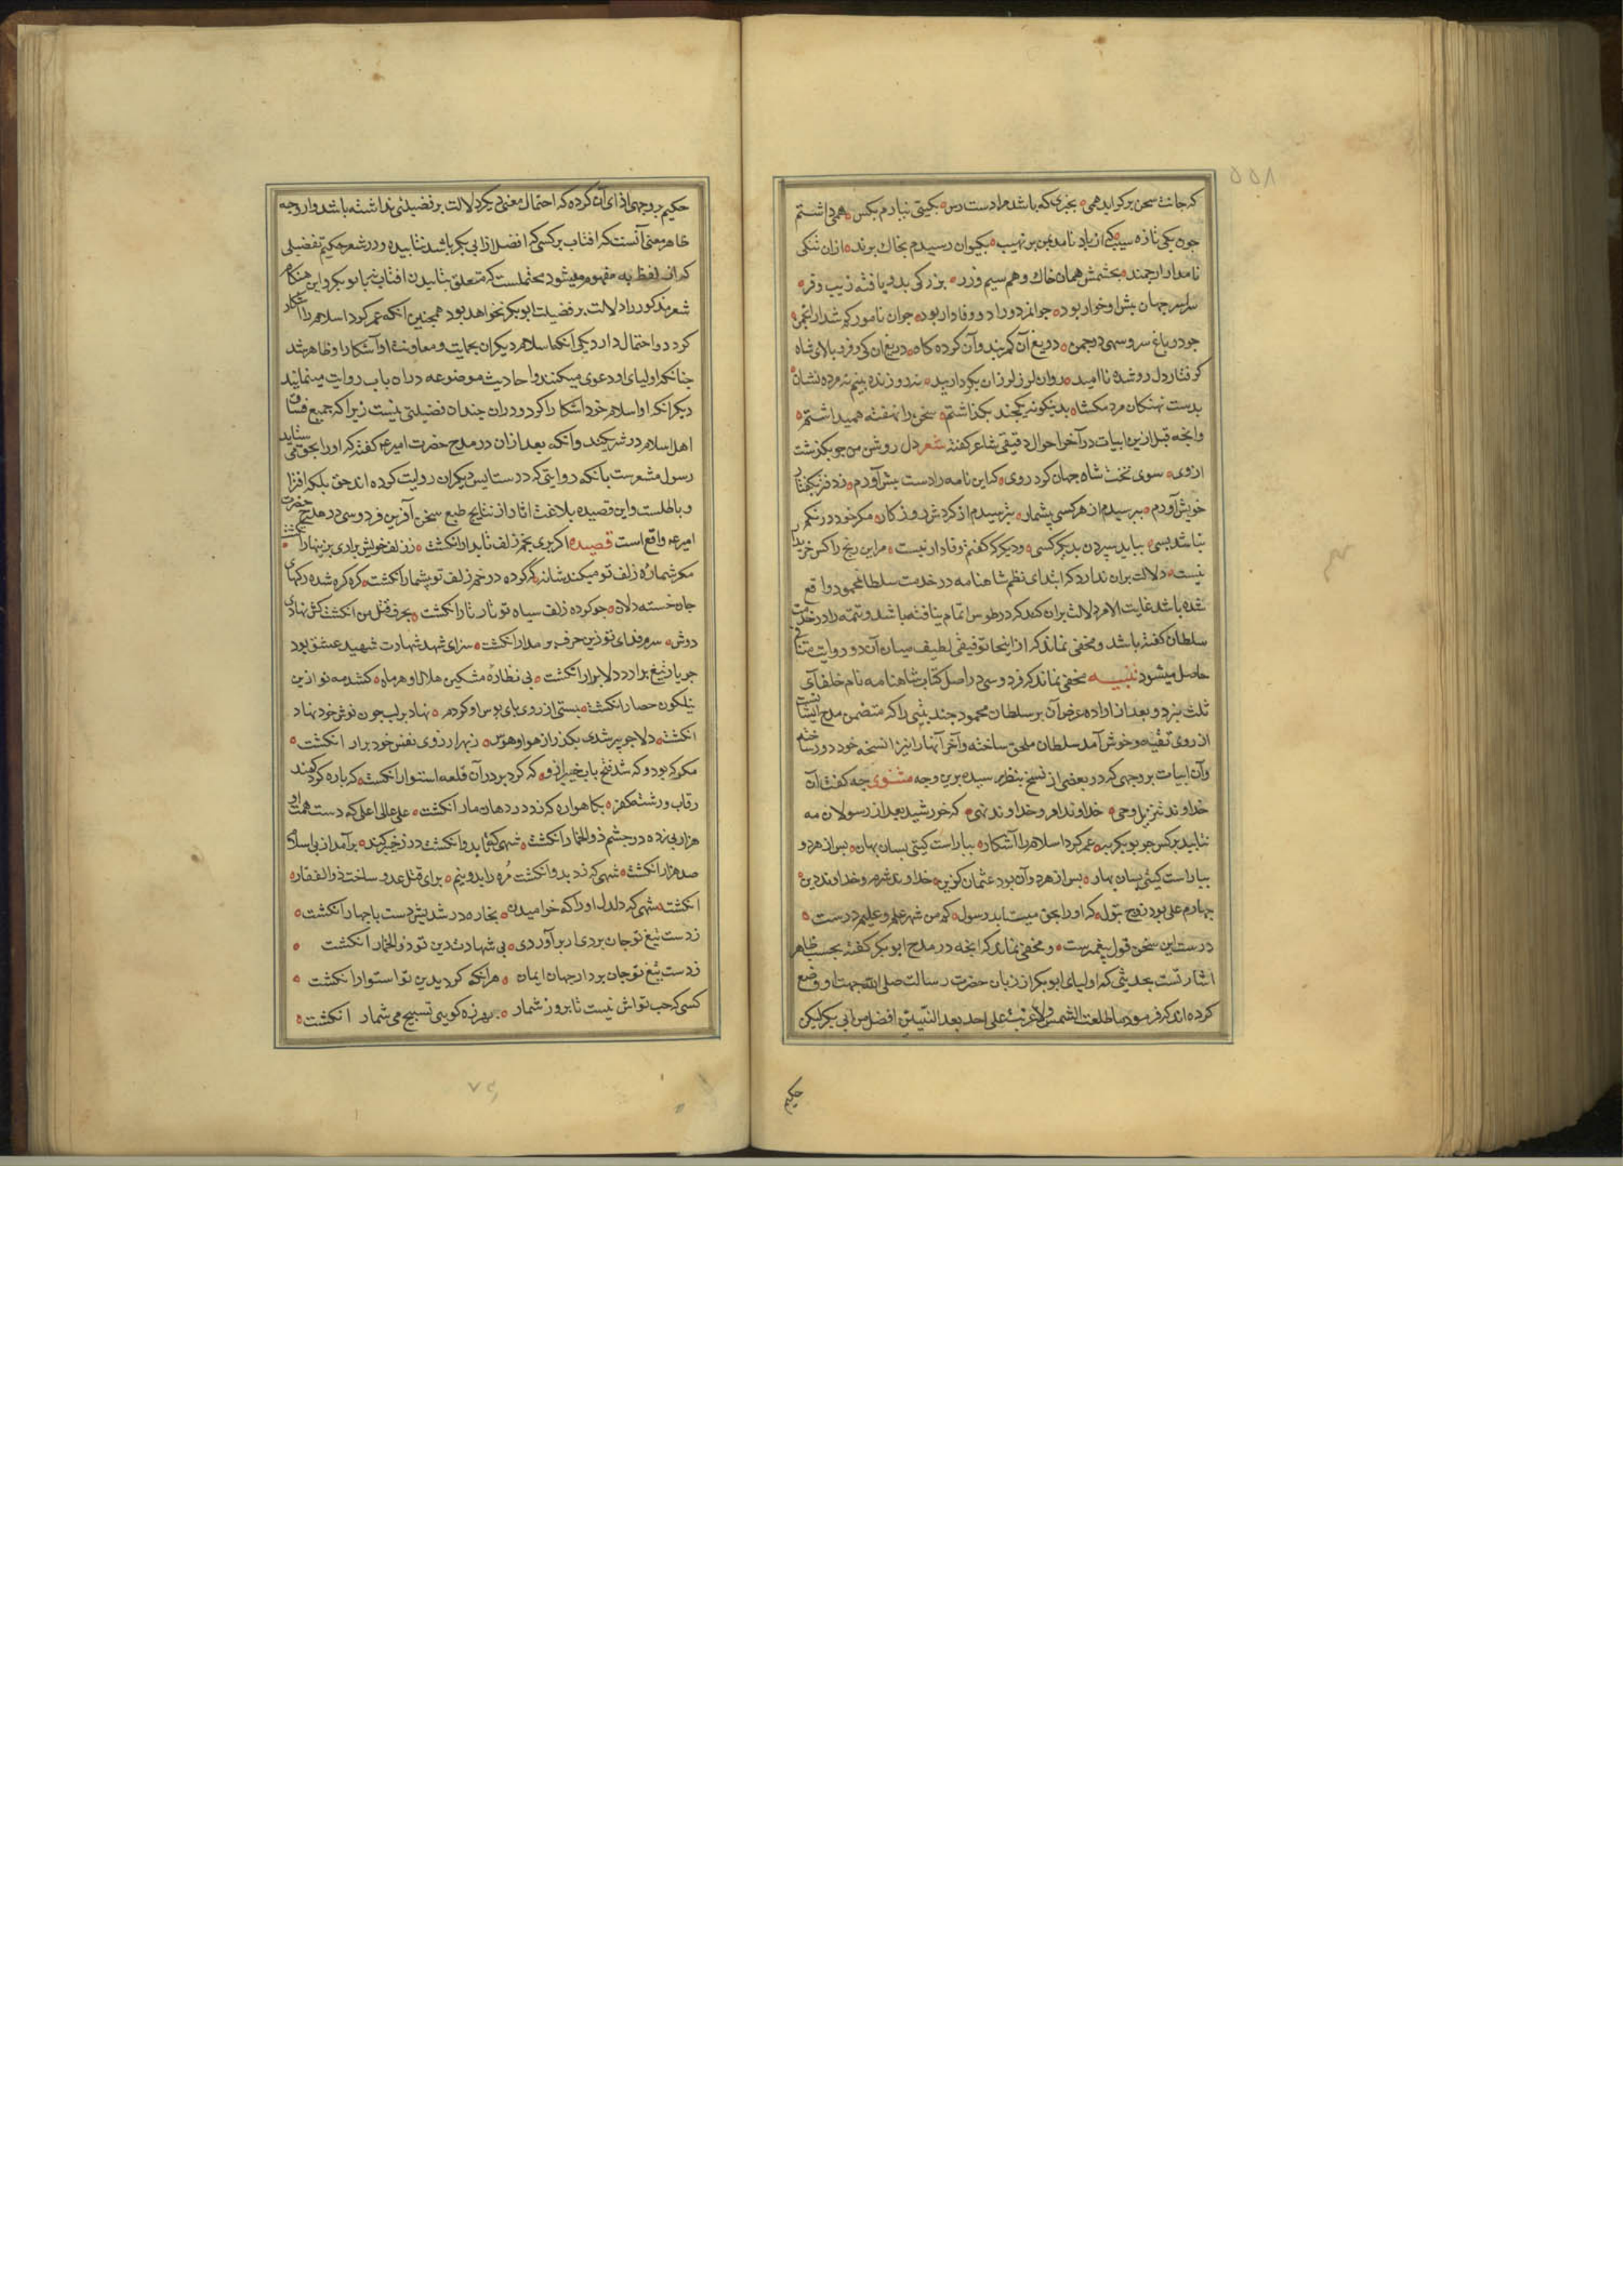 ۵۵۸
که جانت سخن برگراید همی ه بخبری که باشد مرا دست رس ه بگیتی نیارم بکس ه همی داشتم
چون یکی تازه سیب که از باد نامد بمن بر نهیب ه بکیوان رسیدم بخاک نژند ه ازان نیکی
نامدار ارجمند ه بچشمش همان خاک و هم سیم و زر ه بزرکی بدو یافته زیب و فر ه
سراسر جهان پیش او خوار بود ه جوانمرد و راد و وفادار بود ه جوان نامور کم شد از انجمن ه
چو در باغ سرو سهی در چمن ه دریغ آن کمربند و آن گرده کاه ه دریغ آن کی و فر و بالای شاه
کرفتار دل رو شده ناامید ه روان لرز لرزان بکردار بید ه نه رو زنده بینم نه مرده نشان ه
بدست نهنکان مردمکشان ه بدینکونه یکچند بکذاشتم ه سخن را نهفته همیداشتم ه
و آنچه قبل ازین ابیات در آخر احوال دقیقی شاعر کفته شعر دل روشن من چو بکذشت
از وی ه سوی تخت شاه جهان کرد روی ه که این نامه را دست پیش آورم ه ز دفتر بکفتار
خویش آورم ه بپرسیدم از هر کسی بیشمار ه بترسیدم از کردش روزکار ه مکر خود درنکم
نباشد بسی ه بباید سپردن بدیکر کسی ه و دیکر که کنجم وفادار نیست ه مر این رنج را کس خریدار
نیست ه دلالت بران ندارد که ابتدای نظم شاهنامه در خدمت سلطان محمود واقع
شده باشد غایت الامر دلالت بران کند که در طوس اتمام نیافته باشد و تتمه را در خدمت
سلطان کفته باشد و مخفی نماند که از اینجا توفیقی لطیف میان آن دو روایت متنافی
حاصل میشود تنبیه مخفی نماند که فردوسی در اصل کتاب شاهنامه نام خلفای
ثلث نبرد و بعد از اراده عرض آن بر سلطان محمود چند بیتی را که متضمن مدح ایشانست
از روی تقیه و خوش آمد سلطان ملحق ساخته و آخر آنها را نیز از نسخه خود دور ساخته
و آن ابیات بروجهی که در بعضی از نسخ بنظر رسیده برین وجه مثنوی چه کفت آن
خداوند تنزیل و وحی ه خداوند امر و خداوند نهی ه که خورشید بعد از رسولان مه
نتابید بر کس چو بوبکر به ه عمر کرد اسلام را آشکار ه بیاراست کیتی بسان بهار ه پس از هر دو
بیاراست کیتی بسان بهار ه پس از هر دو آن بود عثمان کزین ه خداوند شرم و خداوند دین ه
چهارم علی بود زوج بتول ه که او را بحق میستاید رسول ه که من شهر علمم و علیم درست ه
درست این سخن قول پیغمبرست ه و مخفی نماند که آنچه در مدح ابوبکر کفته بحسب ظاهر
اشارتست بحدیثی که اولیای ابوبکر از زبان حضرت رسالت صلی الله جهت او وضع
کرده اند که فرموده ما طلعت الشمس ولا غربت علی احد بعد النبیین افضل من ابی بکر لیکن
حکیم
حکیم بروجهی ادای آن کرده که احتمال معنی دیکر که دلالت بر فضیلتی نداشته باشد دارد چه
ظاهر معنی آنست که افتاب بر کسی که افضل از ابی بکر باشد نتابیده و در شعر حکیم تفضیلی
که از لفظ به مفهوم میشود محتملست که متعلق بتابیدن افتاب نه بابوبکر و این هنکام
شعر مذکور را دلالت بر فضیلت ابوبکر نخواهد بود همچنین آنکه عمر کرد اسلام را آشکار
کرد دو احتمال دارد یکی آنکه اسلام دیکران بحمایت و معاونت او آشکار و ظاهر شد
چنانکه اولیای او دعوی میکنند و احادیث موضوعه در آن باب روایت مینمایند
دیکر آنکه او اسلام خود اشکارا کرد و دران چندان فضیلتی نیست زیرا که جمیع فساق
اهل اسلام در شریکند و آنکه بعد ازان در مدح حضرت امیر ع کفته که او را بحق می ستاید
رسول مشعرست بآنکه روایتی که در ستایش دیکران روایت کرده اند حق بلکه افترا
و باطلست و این قصیده بلاغت اثار از نتایج طبع سخن آفرین فردوسی در مدح حضرت
امیر ع واقع است قصیده اکر بری بخم زلف تابدار انکشت ه ز زلف خویش براری بزینهار انکشت ه
مکر شماره زلف تو میکند شانه که کرده در خم زلف تو بیشمار انکشت ه کره کره شده رکهای
جان خسته دلان ه چو کرده زلف سیاه تو تار تار انکشت ه بحرف قتل من انکشت کش نهادی
دوش ه سرم فدای تو زین حرف بر مدار انکشت ه سزای شهد شهادت شهید عشق بود
چو یار تیغ برارد دلا برار انکشت ه پی نظاره مشکین هلال او هر ماه ه کشد مه نو ازین
نیلکون حصار انکشت ه بستی از روی پای بوس او کردم ه نهاد بر لب چون نوش خود نهاد
انکشت ه دلا چو پیر شدی بکذر از هوا و هوس ه ز بهر ارزوی نفس خود برار انکشت ه
مکو که بود و که شد فتح باب خیبر ازو ه که کرد بر در آن قلعه استوار انکشت ه که پاره کرد کمند
رقاب و رشته کفر ه بکاهواره که زد در دهان مار انکشت ه علی عالی اعلی که دست همت او
هزار پی زده در چشم ذو الخمار انکشت ه شهی که تا بدو انکشت در ز خیبر کند ه برآمد از پی اسلام
صد هزار انکشت ه شهی که زد بدو انکشت مره را بدو نیم ه برای قتل عدو ساخت ذو الفقار ه
انکشت ه شهی که دلدل او را که خرامیدن ه بخاره در شدیش دست با چهار انکشت ه
ز دست تیغ تو جان بردی ار برآوردی ه پی شهادت دین تو ذو الخمار انکشت ه
ز دست تیغ تو جان برد از جهان ایمان ه هر آنکه کرد بدین تو استوار انکشت ه
کسی که حب تواش نیست تا بروز شمار ه بهرزه کو پی تسبیح می شمار انکشت ه
۷۶